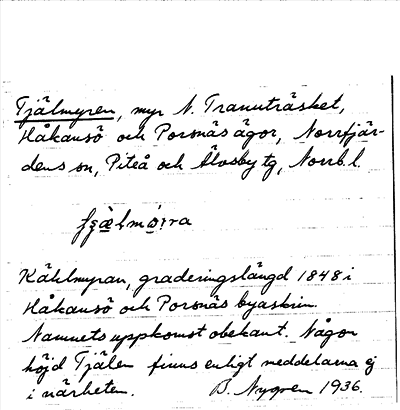 Tjälmyren, myr N. Tranuträsket,
Håkansö och Porsnäs ägor, Norrfjär-
dens sn, Piteå och Älvsby tg, Norrb. l.
Källmyran, graderingslängd 1848 i
Håkansö och Porsnäs byaskrin.
Namnets uppkomst obekant. Någon
höjd Tjälen finns enligt meddelarna ej
i närheten. B. Nygren 1936.